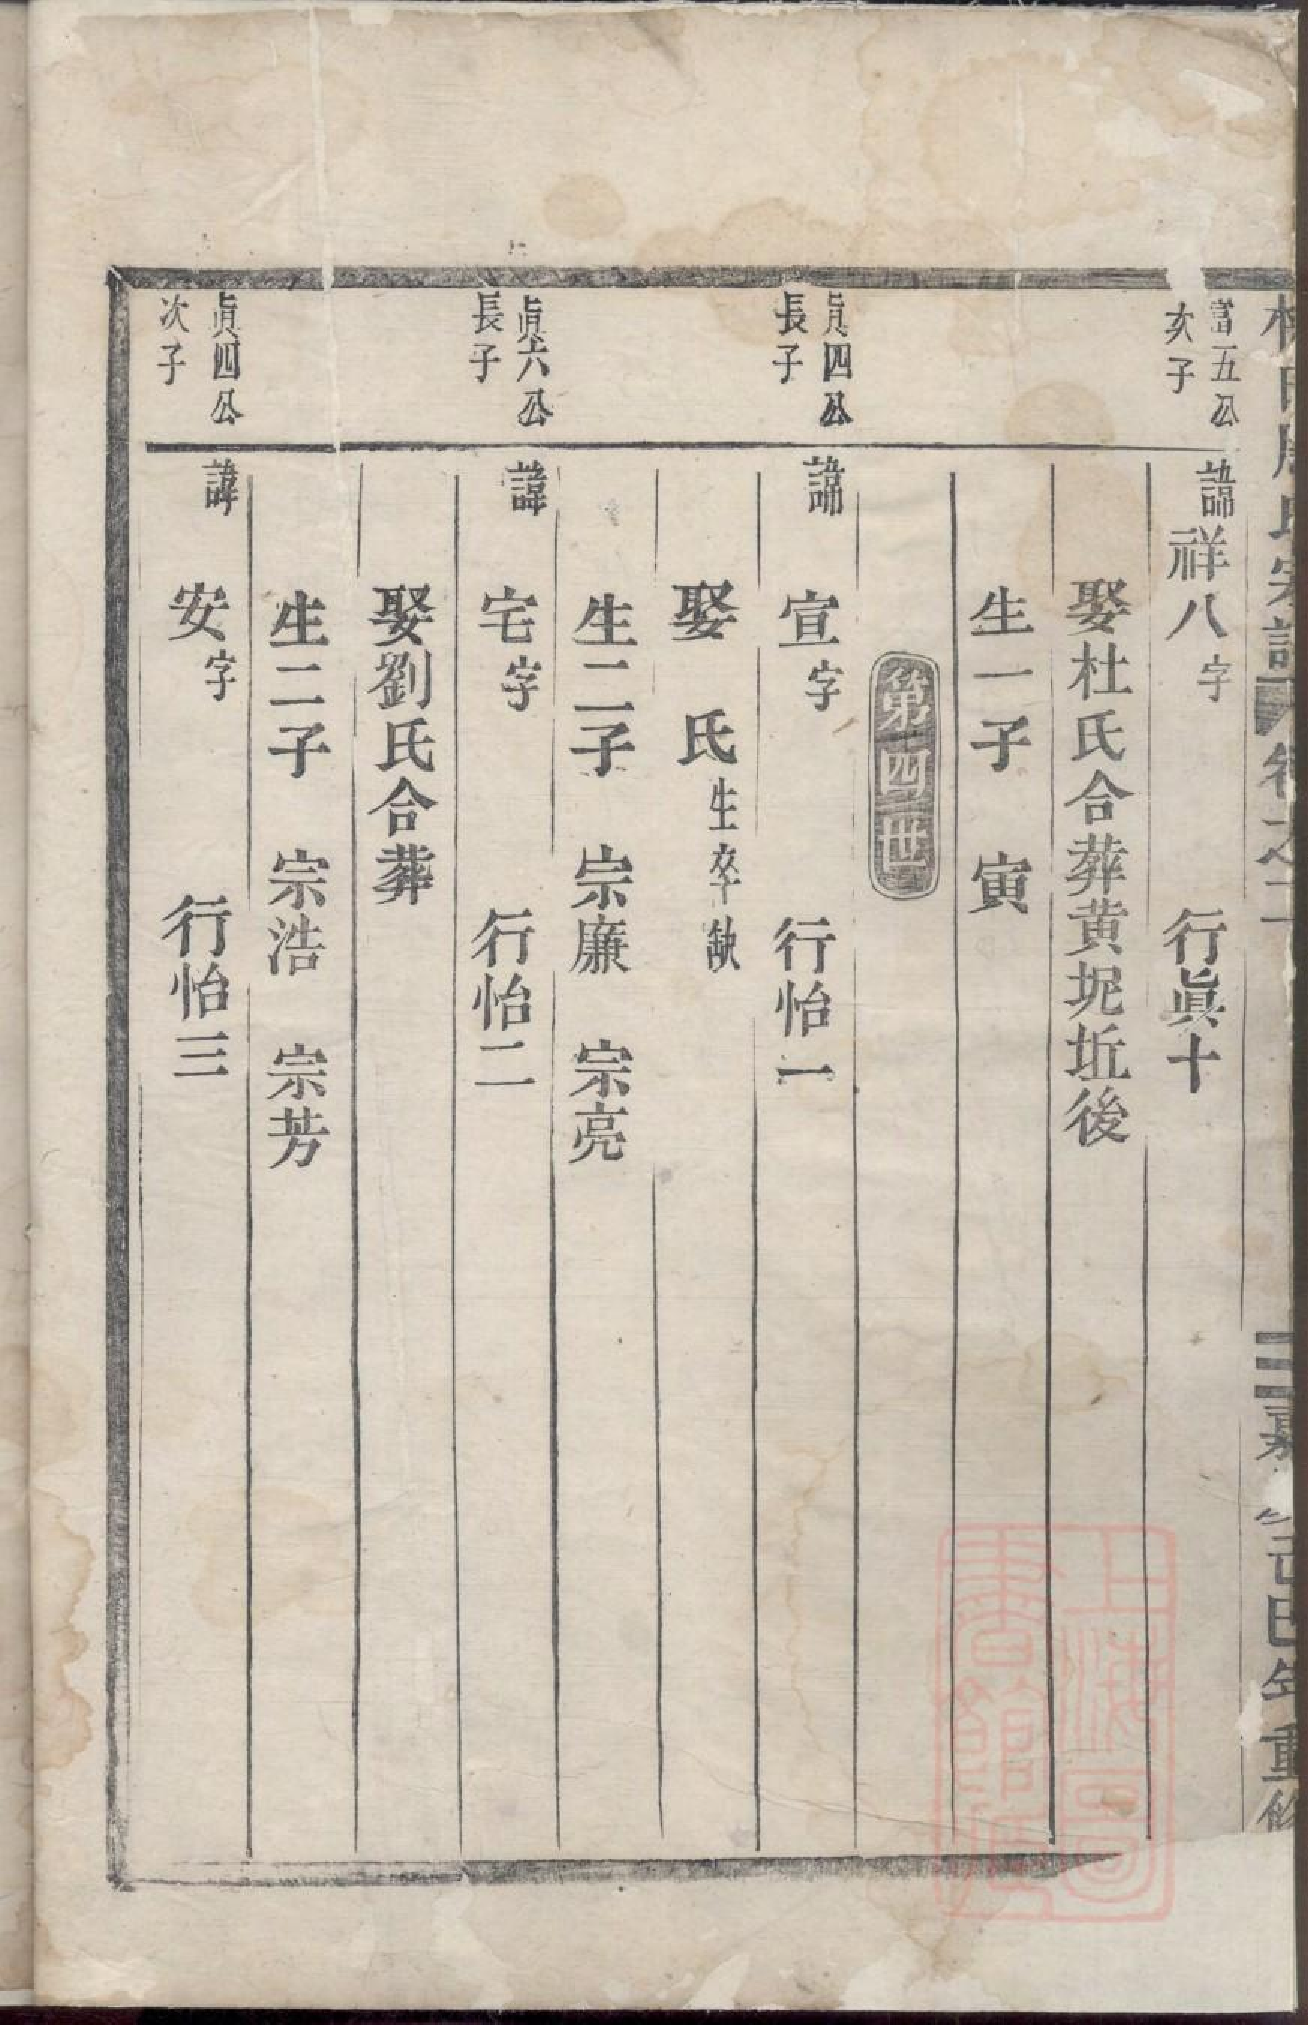 氏宗譜 卷之二
嘉 己巳年重修
富五公
次子
諱祥八字 行眞十
娶杜氏合葬黄坭坵後
生一子 寅
第四世
眞四公
長子
諱宣字 行怡一
娶 氏生卒缺
生二子 宗廉 宗亮
眞六公
長子
諱宅字 行怡二
娶劉氏合葬
生二子 宗浩 宗芳
眞四公
次子
諱安字 行怡三
上海圖
書館藏